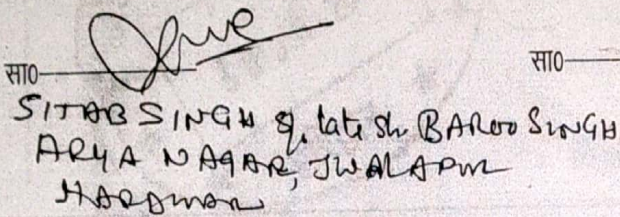 सा0 सा0
SITAB SINGH S/o late Sh. BAROO SINGH
ARYA NAGAR, JWALAPUR
HARDWAR